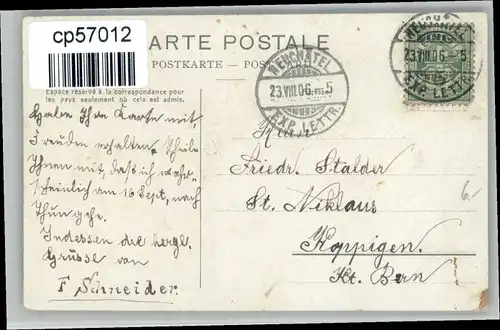 cp57012
CARTE POSTALE
POSTKARTE
Espace réservé à la correspondance pour
les pays seulement où cela est admis.
NEUCHATEL
23.VIII.06. 5
EXP. LETTR.
NEUCHATEL
23.VIII.06 5
EXP. LETTR.
Habe Ihre Karte mit
Freuden erhalten. Theile
Ihnen mit, dass ich wahr-
scheinlich am 16 Sept. nach
Thun gehe.
Indessen die herzl.
Grüsse von
F Schneider.
Herrn
Friedr. Stalder
St. Niklaus
Koppigen.
Kt. Bern
6.-